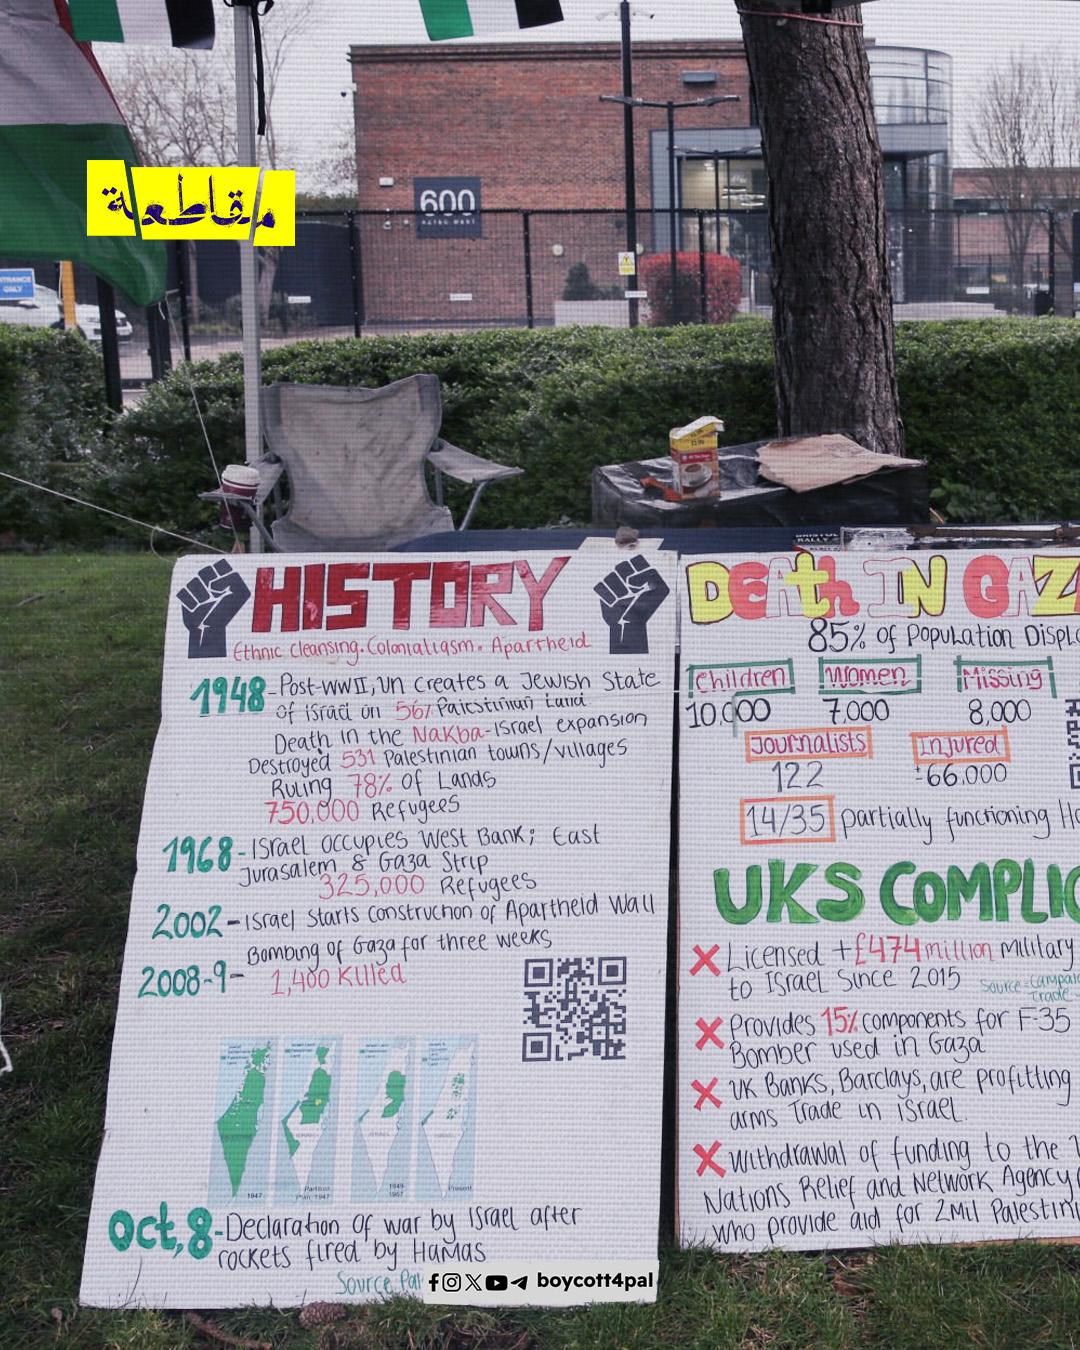 مقاطعة
600
ENTRANCE
ONLY
HISTORY
Ethnic Cleansing. Colonialiasm. Apartheid
1948 - Post-WWII, UN Creates a Jewish State
of Israel on 56% Palestinian Land.
Death in the Nakba - Israel expansion
Destroyed 531 Palestinian towns/villages
Ruling 78% of Lands
750.000 Refugees
1968 - Israel occupies West Bank; East
Jurasalem & Gaza Strip
325,000 Refugees
2002 - Israel starts construction of Apartheid Wall
Bombing of Gaza for three weeks
2008-9 - 1,400 Killed
1947
Partition
Plan, 1947
1949-
1967
Present
Oct, 8 - Declaration of war by Israel after
rockets fired by Hamas
Source Pal
boycott4pal
DEATH IN GAZ
85% of Population Displ
Children Women Missing
10.000 7.000 8,000
Journalists Injured
122 ±66.000
14/35 partially functioning Ho
UKS COMPLIC
Licensed +£474 million military
to Israel since 2015
Source = Campai
Trade
Provides 15% components for F-35
Bomber used in Gaza
UK Banks, Barclays, are profitting
arms Trade in Israel.
Withdrawal of funding to the
Nations Relief and Network Agency
who provide aid for 2Mil Palestini